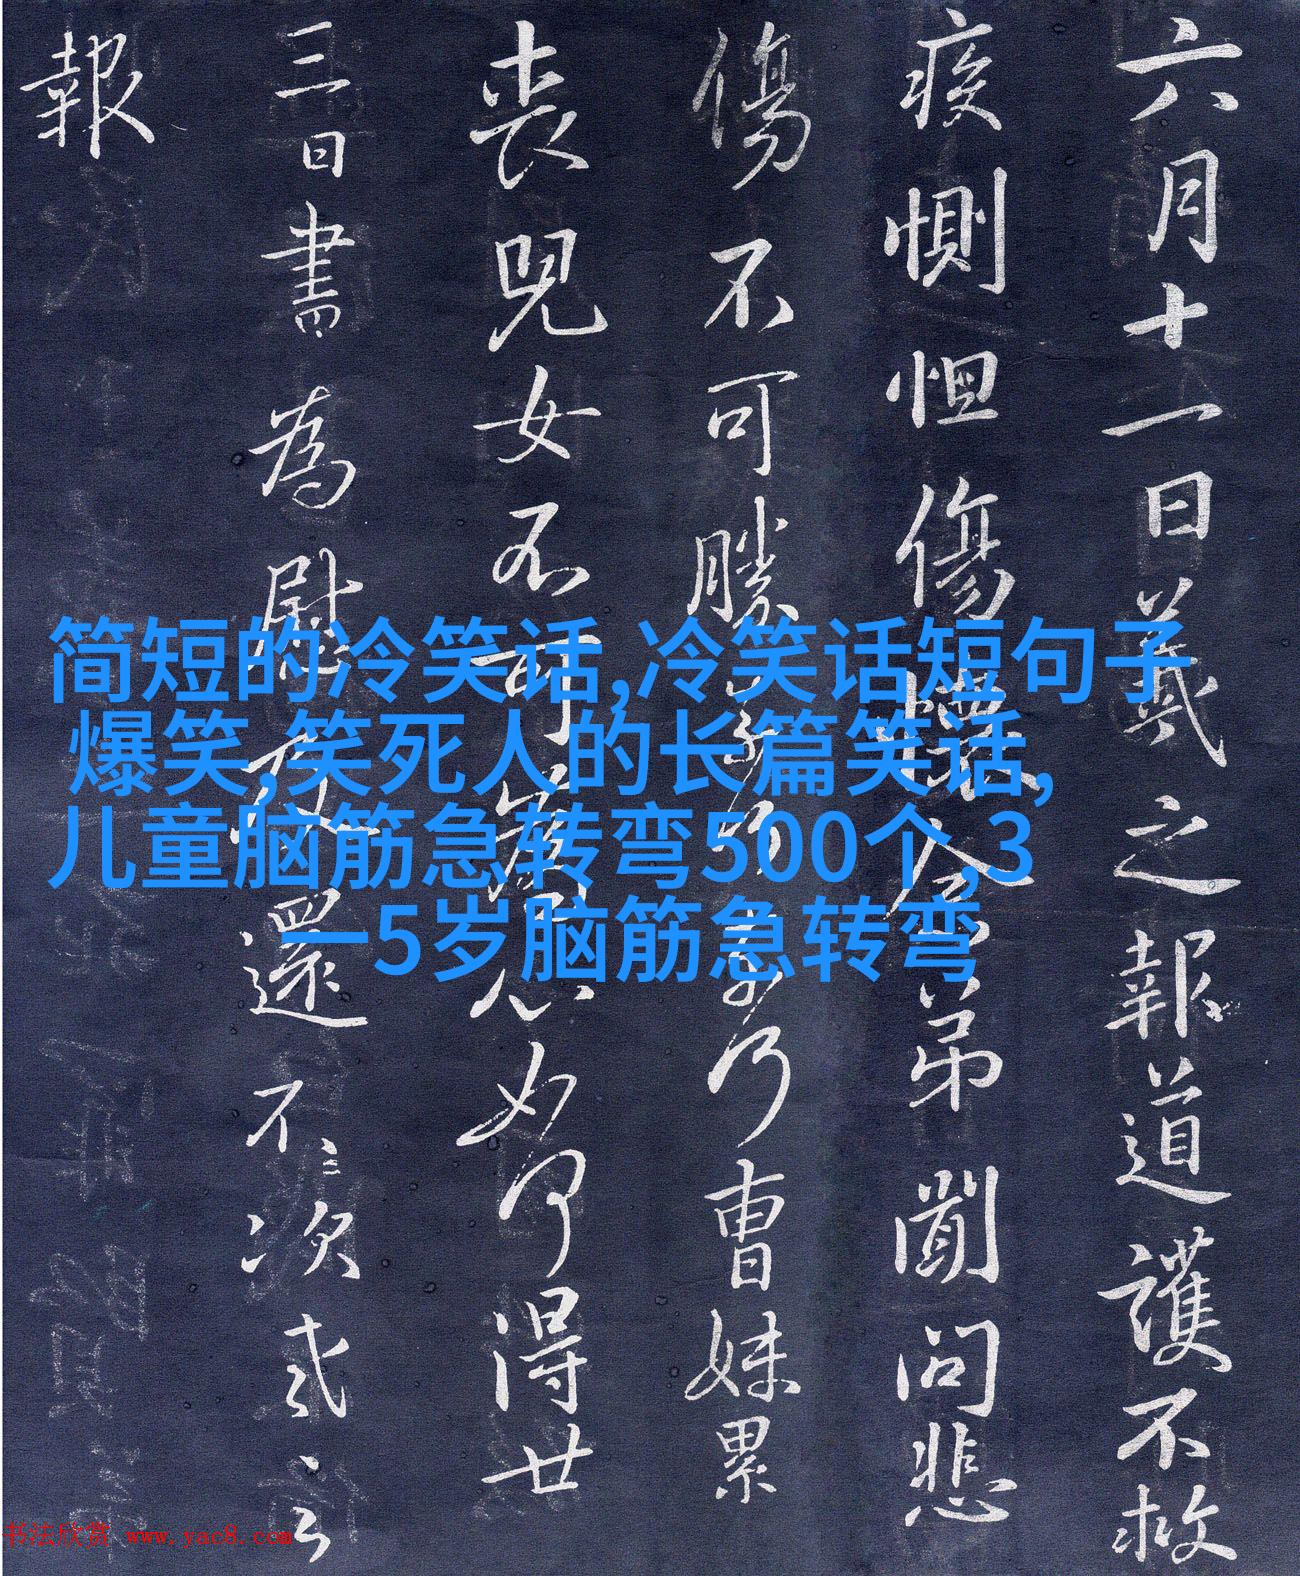 六月十一日羲之報道護不救
疾惻怛傷懷念弟聞問悲
傷不可勝乃曹妹累
喪兒女不可為心如何得廿
三日書為慰及還不次羲之
報
简短的冷笑话,冷笑话短句子
爆笑,笑死人的长篇笑话,
儿童脑筋急转弯500个,3
一5岁脑筋急转弯
书法欣赏 www.yac8.com